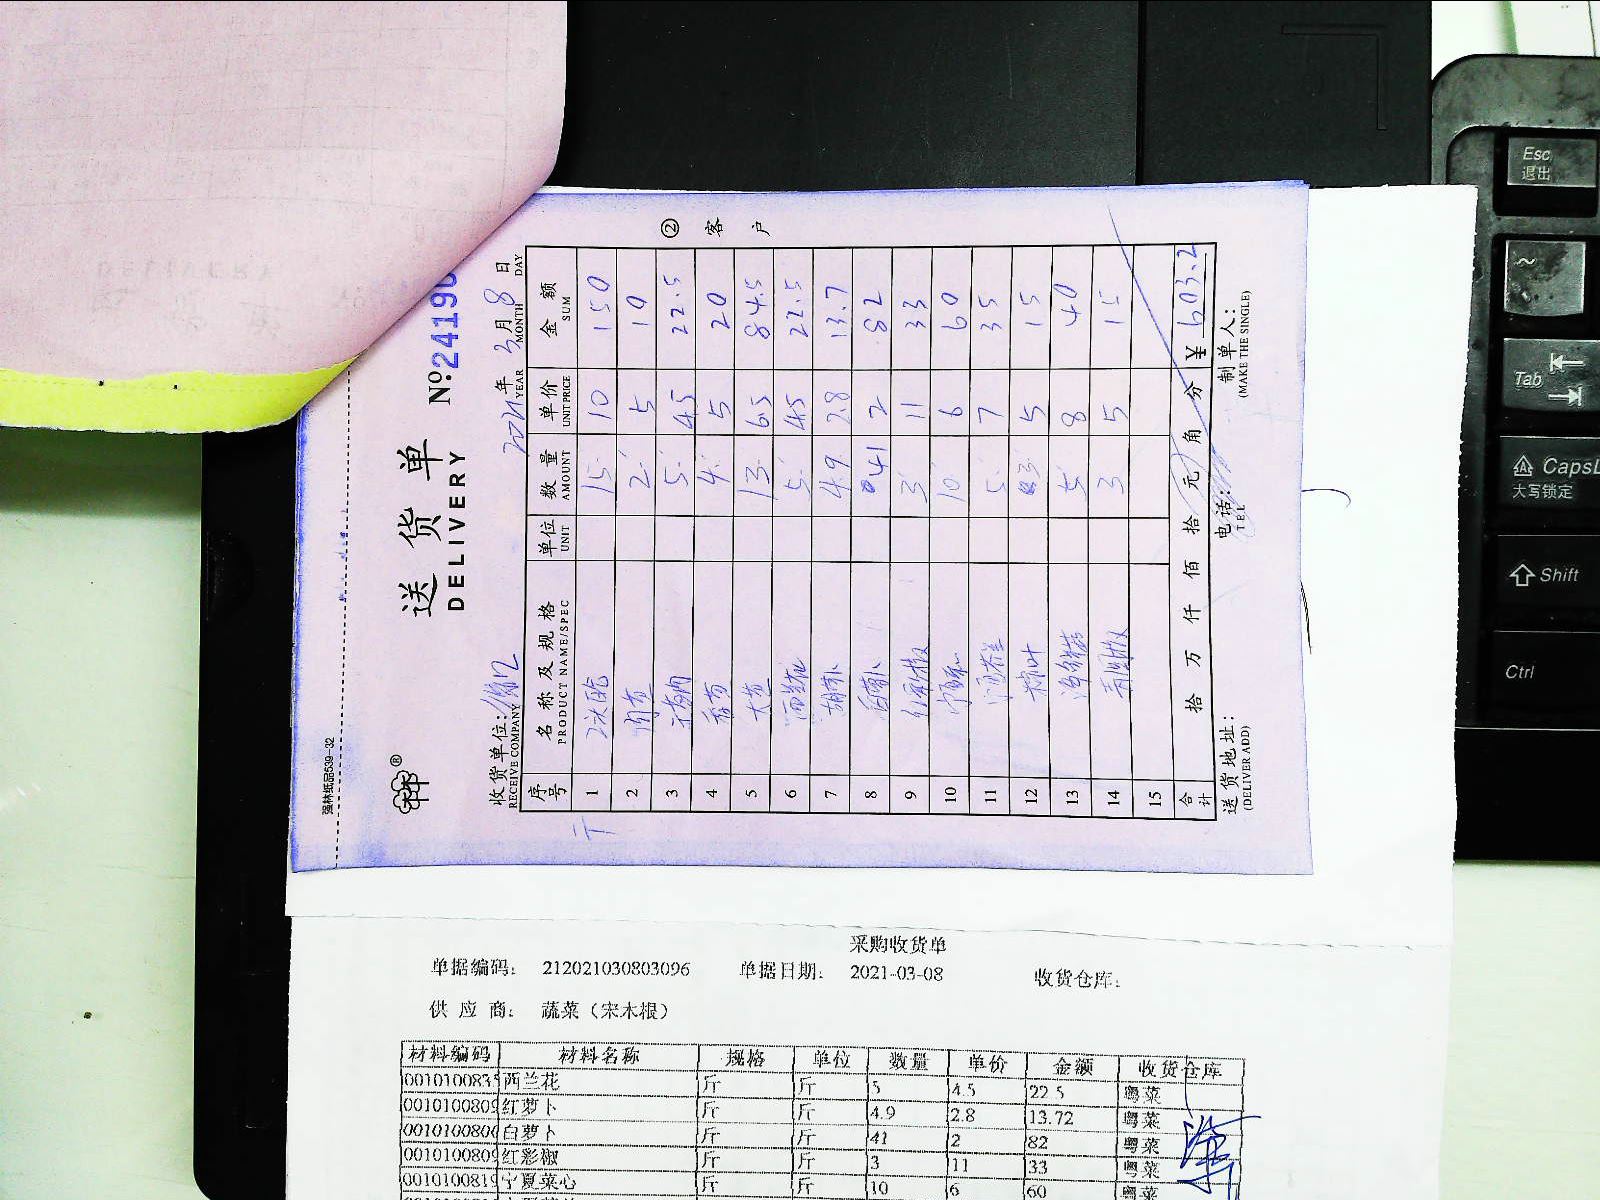 强林纸品539-32
送货单
DELIVERY
№:24190
② 客户
收货单位:
RECEIVE COMPANY
2021年 3月 8日
YEAR MONTH DAY
序号 名称及规格 单位 数量 单价 金额
PRODUCT NAME/SPEC UNIT AMOUNT UNIT PRICE SUM
1 15 10 150
2 2 5 10
3 5 4.5 22.5
4 香芹 4 5 20
5 大葱 13 6.5 84.5
6 西兰花 5 4.5 22.5
7 胡萝卜 4.9 2.8 13.7
8 白萝卜 41 2 82
9 红彩椒 3 11 33
10 10 6 60
11 5 7 35
12 3 5 15
13 5 8 40
14 3 5 15
15
合计 拾 万 仟 佰 拾 元 角 分 ¥ 603.2
送货地址: 电话: 制单人:
(DELIVER ADD) TEL (MAKE THE SINGLE)
采购收货单
单据编码: 212021030803096 单据日期: 2021-03-08 收货仓库:
供应商: 蔬菜(宋木根)
材料编码 材料名称 规格 单位 数量 单价 金额 收货仓库
0010100835 西兰花 斤 斤 5 4.5 22.5 粤菜
0010100809 红萝卜 斤 斤 4.9 2.8 13.72 粤菜
0010100806 白萝卜 斤 斤 41 2 82 粤菜
0010100809 红彩椒 斤 斤 3 11 33 粤菜
0010100819 宁夏菜心 斤 斤 10 6 60 粤菜
Esc
退出
~
Tab
CapsL
大写锁定
Shift
Ctrl